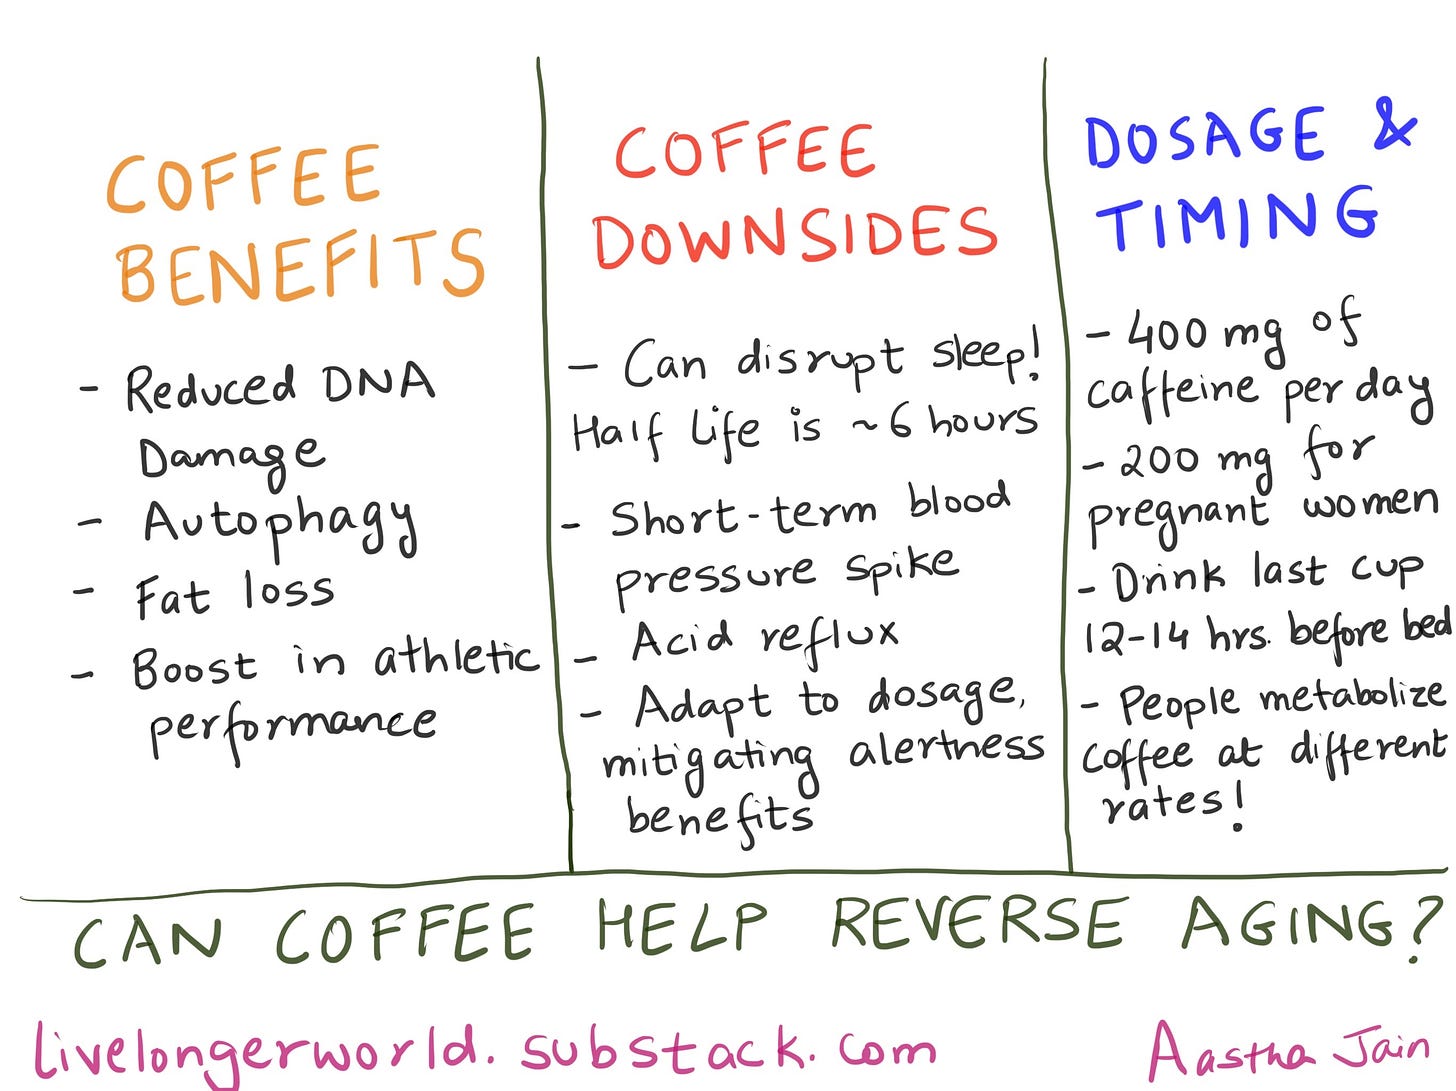 COFFEE
BENEFITS
- Reduced DNA
Damage
- Autophagy
- Fat loss
- Boost in athletic
performance
COFFEE
DOWNSIDES
- Can disrupt sleep!
Half Life is ~6 hours
- Short-term blood
pressure spike
- Acid reflux
- Adapt to dosage,
mitigating alertness
benefits
DOSAGE &
TIMING
- 400 mg of
caffeine per day
- 200 mg for
pregnant women
- Drink last cup
12-14 hrs. before bed
- People metabolize
coffee at different
rates!
CAN COFFEE HELP REVERSE AGING?
livelongerworld.substack.com
Aastha Jain